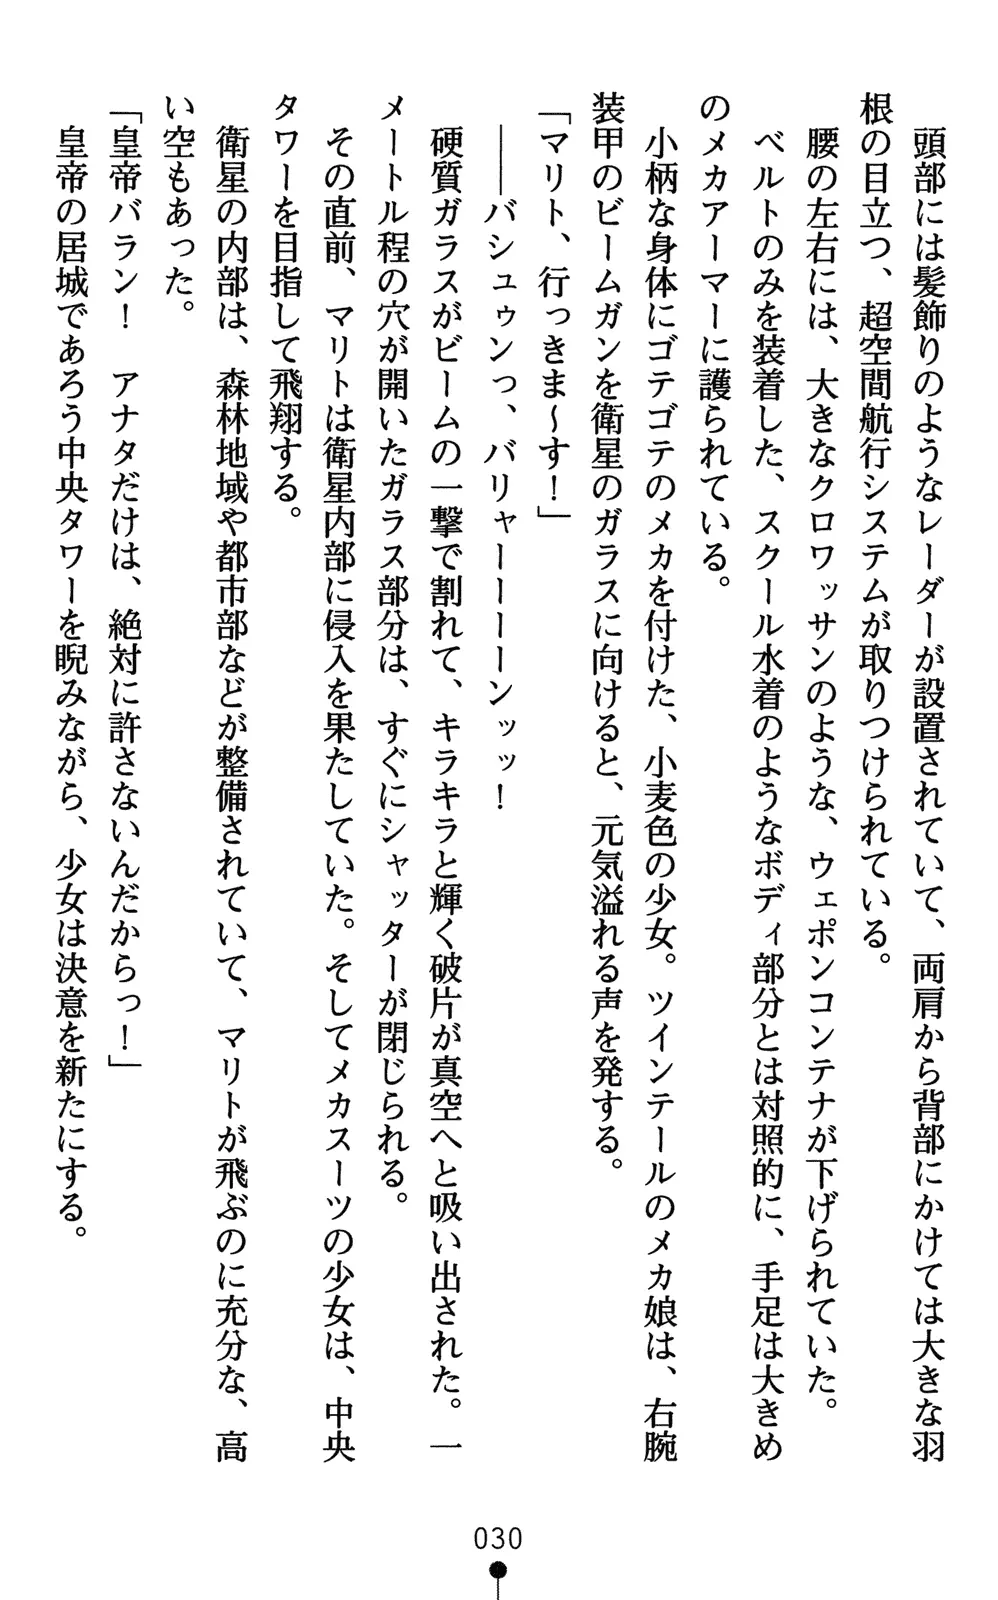 頭部には髪飾りのようなレーダーが設置されていて、両肩から背部にかけては大きな羽
根の目立つ、超空間航行システムが取りつけられている。
　腰の左右には、大きなクロワッサンのような、ウェポンコンテナが下げられていた。
　ベルトのみを装着した、スクール水着のようなボディ部分とは対照的に、手足は大きめ
のメカアーマーに護られている。
　小柄な身体にゴテゴテのメカを付けた、小麦色の少女。ツインテールのメカ娘は、右腕
装甲のビームガンを衛星のガラスに向けると、元気溢れる声を発する。
「マリト、行っきま～す！」
　――バシュゥンっ、バリャーーーーンッッ！
　硬質ガラスがビームの一撃で割れて、キラキラと輝く破片が真空へと吸い出された。一
メートル程の穴が開いたガラス部分は、すぐにシャッターが閉じられる。
　その直前、マリトは衛星内部に侵入を果たしていた。そしてメカスーツの少女は、中央
タワーを目指して飛翔する。
　衛星の内部は、森林地域や都市部などが整備されていて、マリトが飛ぶのに充分な、高
い空もあった。
「皇帝バラン！　アナタだけは、絶対に許さないんだからっ！」
　皇帝の居城であろう中央タワーを睨みながら、少女は決意を新たにする。
030